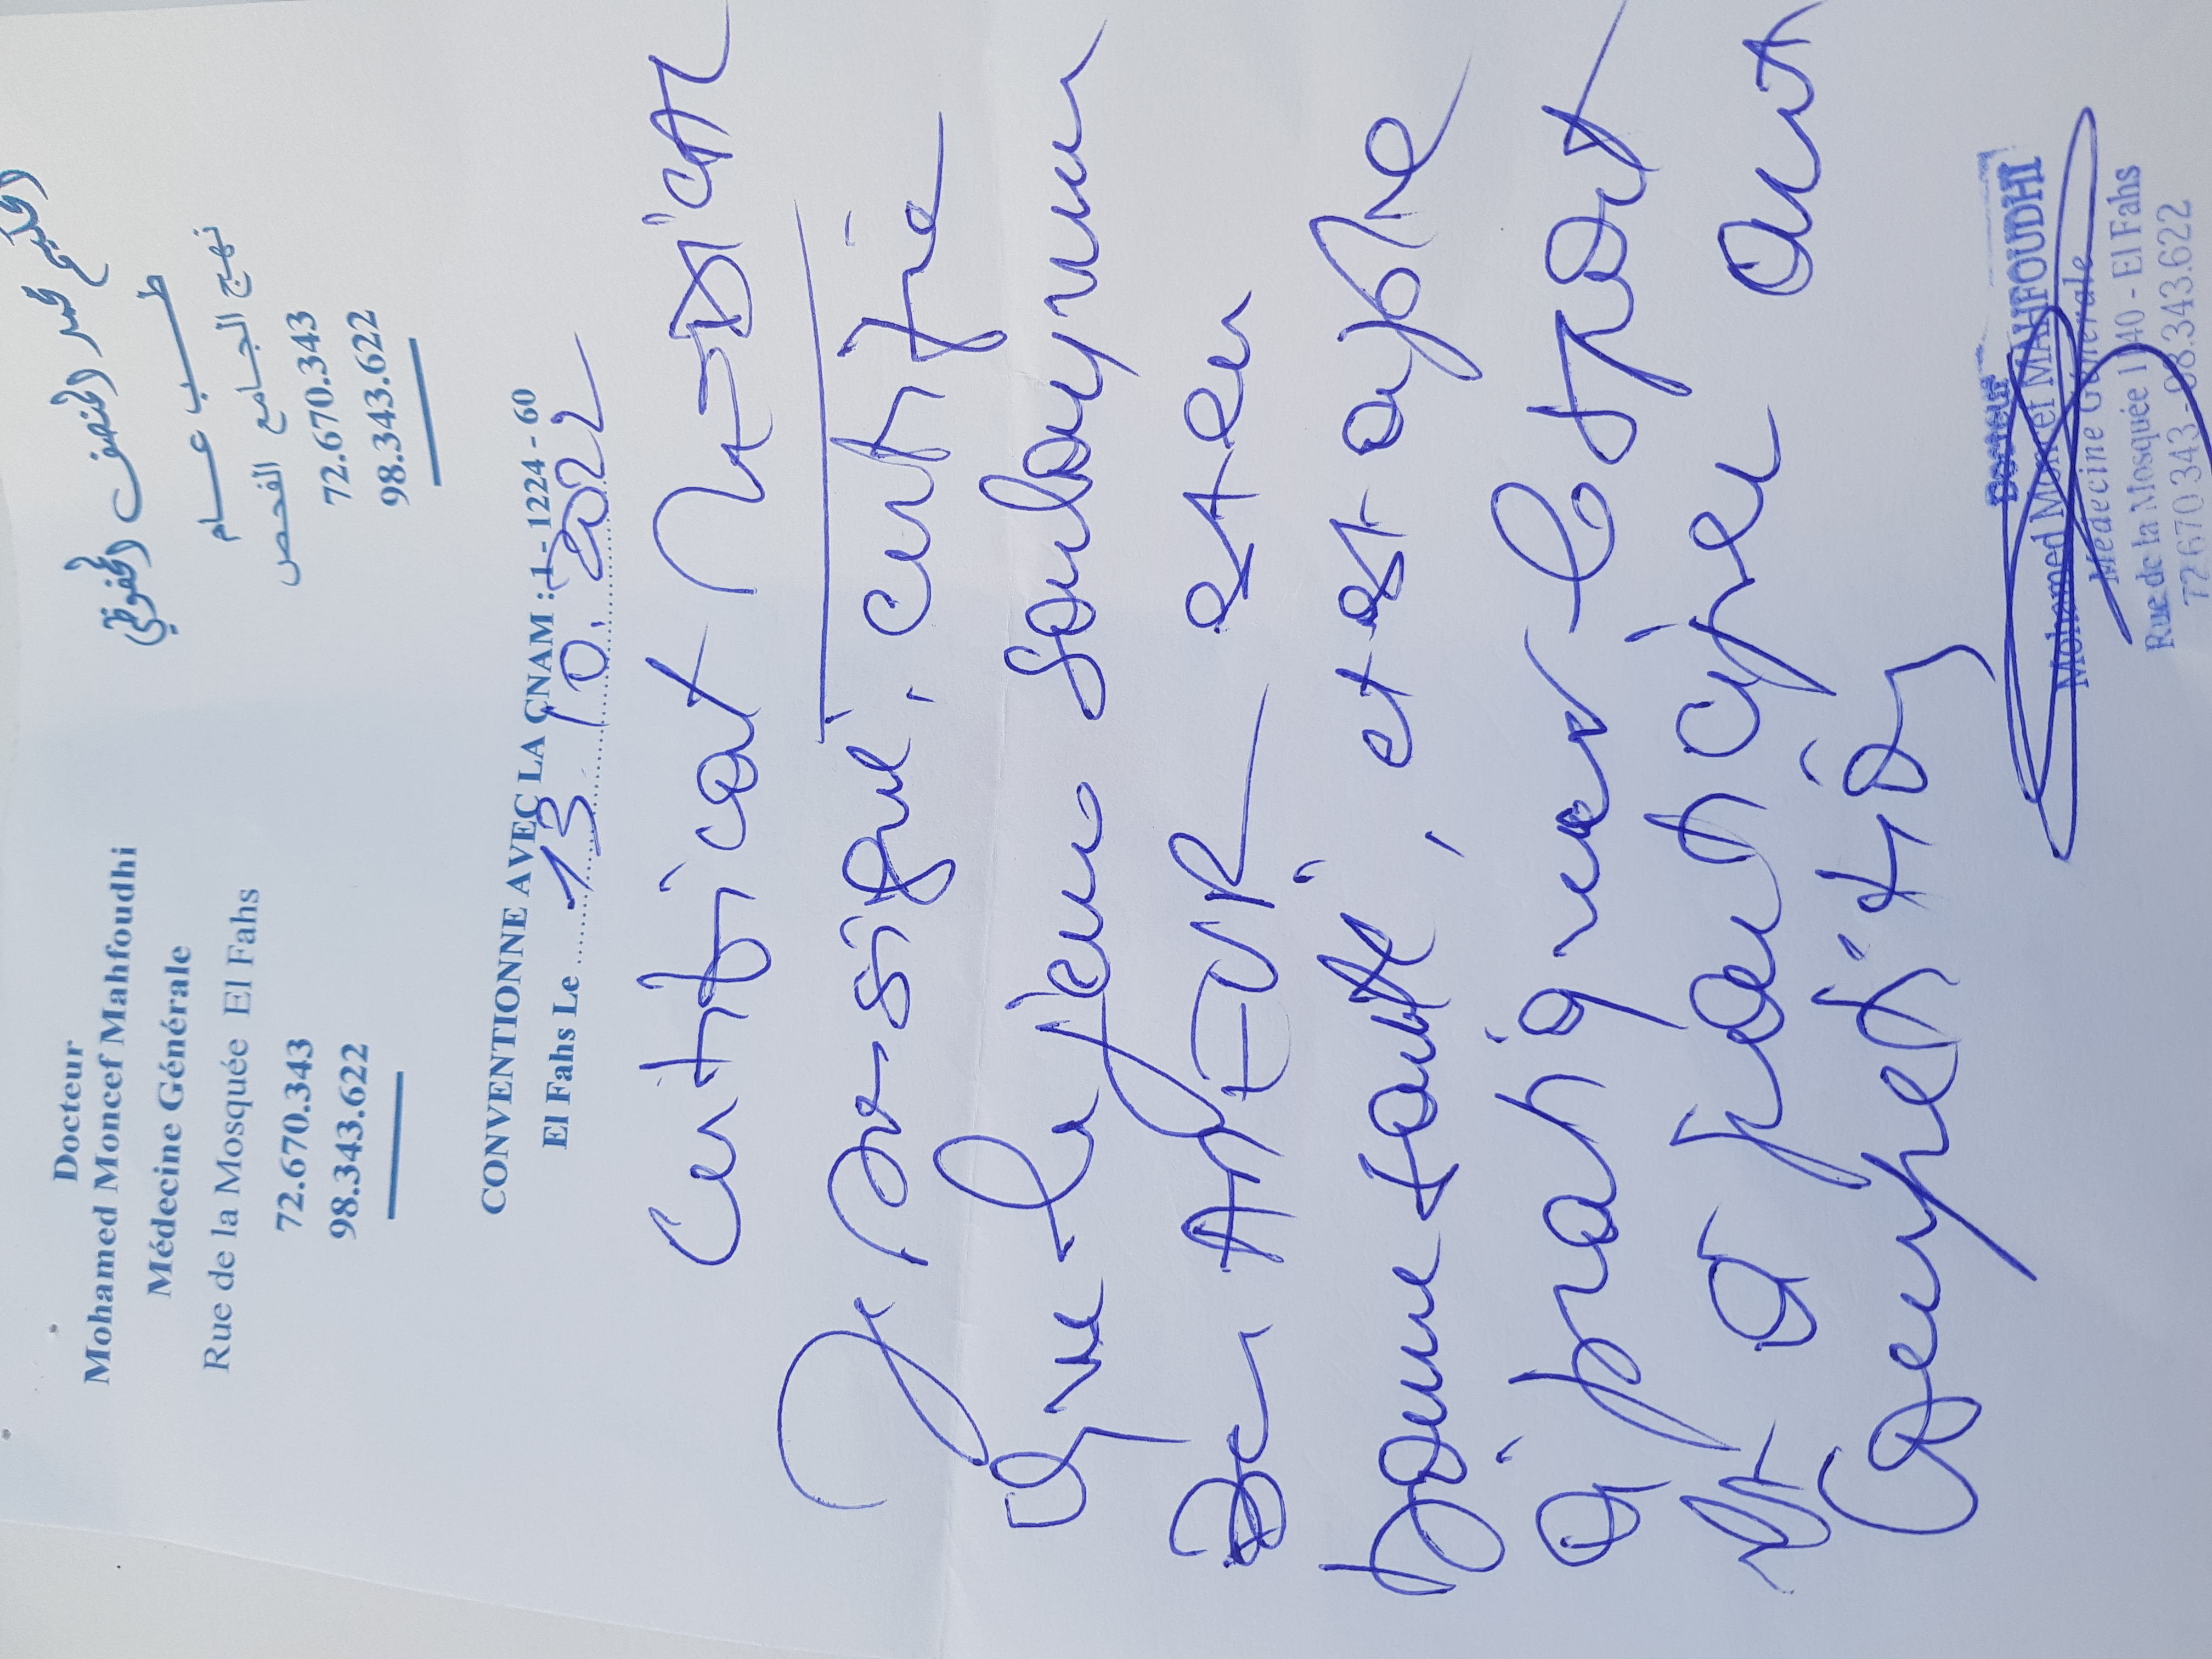 Docteur
Mohamed Moncef Mahfoudhi
Médecine Générale
Rue de la Mosquée El Fahs
72.670.343
98.343.622
الحكيم محمد المنصف المحفوظي
طـــب عـــام
نهج الجامع الفحص
72.670.343
98.343.622
CONVENTIONNE AVEC LA CNAM : 1 - 1224 - 60
El Fahs Le 13 10. 2022
Certificat Médical
Je sous-signé, certifie
que le jeune Soulaymen
Ben est en
bonne santé, et est apte
à pratiquer le sport
et à participer aux
Compétitions
Docteur
Mohamed Moncef MAHFOUDHI
Médecine Générale
Rue de la Mosquée 1140 - El Fahs
72.670.343 - 98.343.622